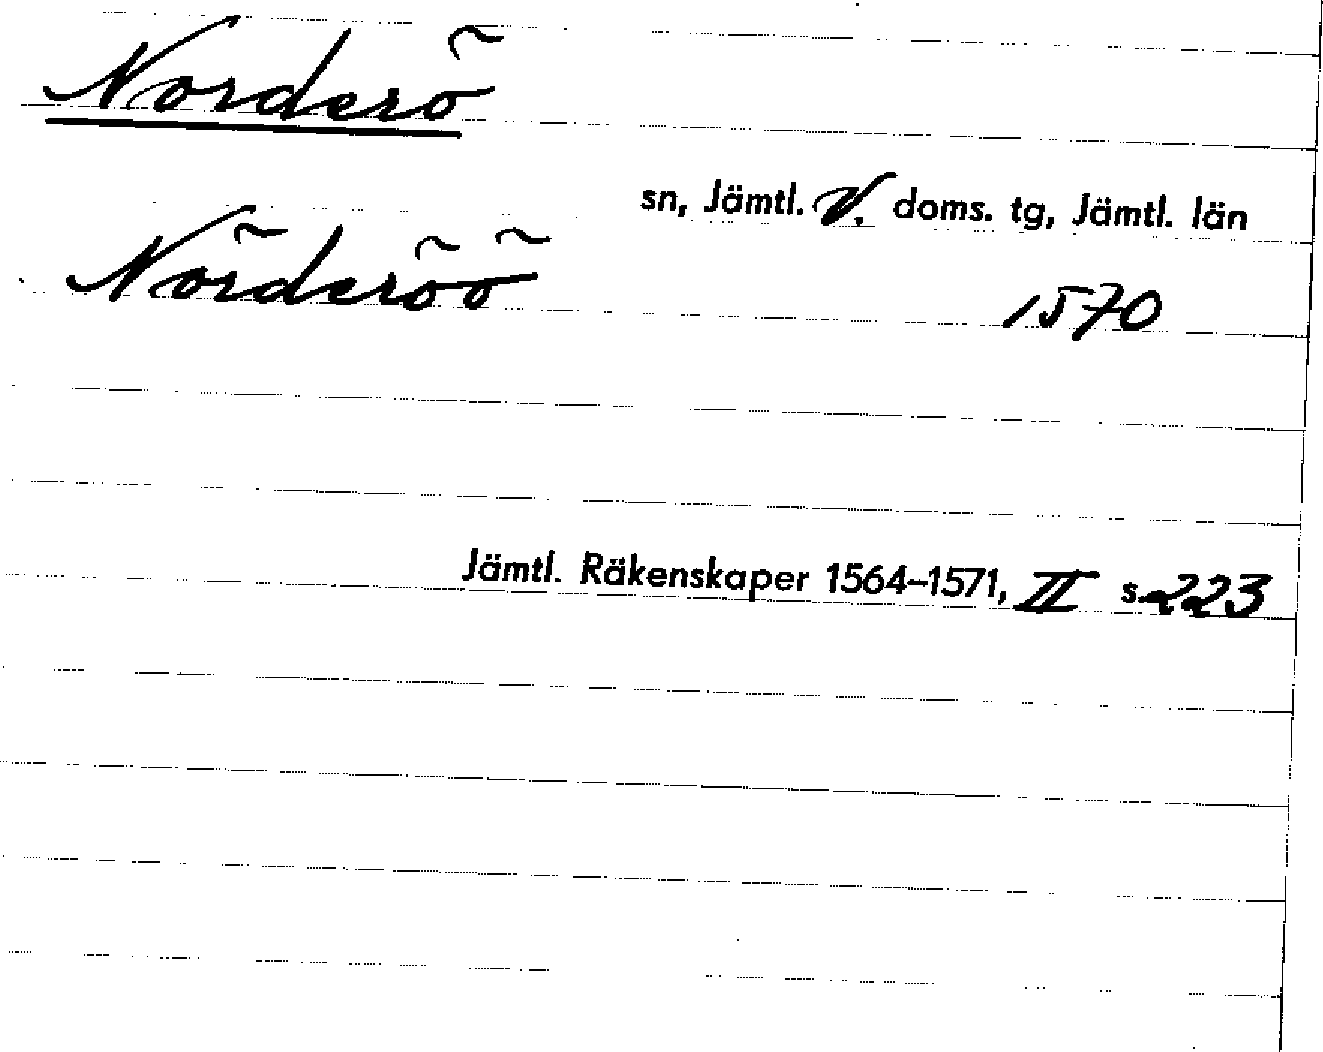 Norderö
sn, Jämtl. V. doms. tg, Jämtl. län
Nörderöö 1570
Jämtl. Räkenskaper 1564–1571, II s. 223